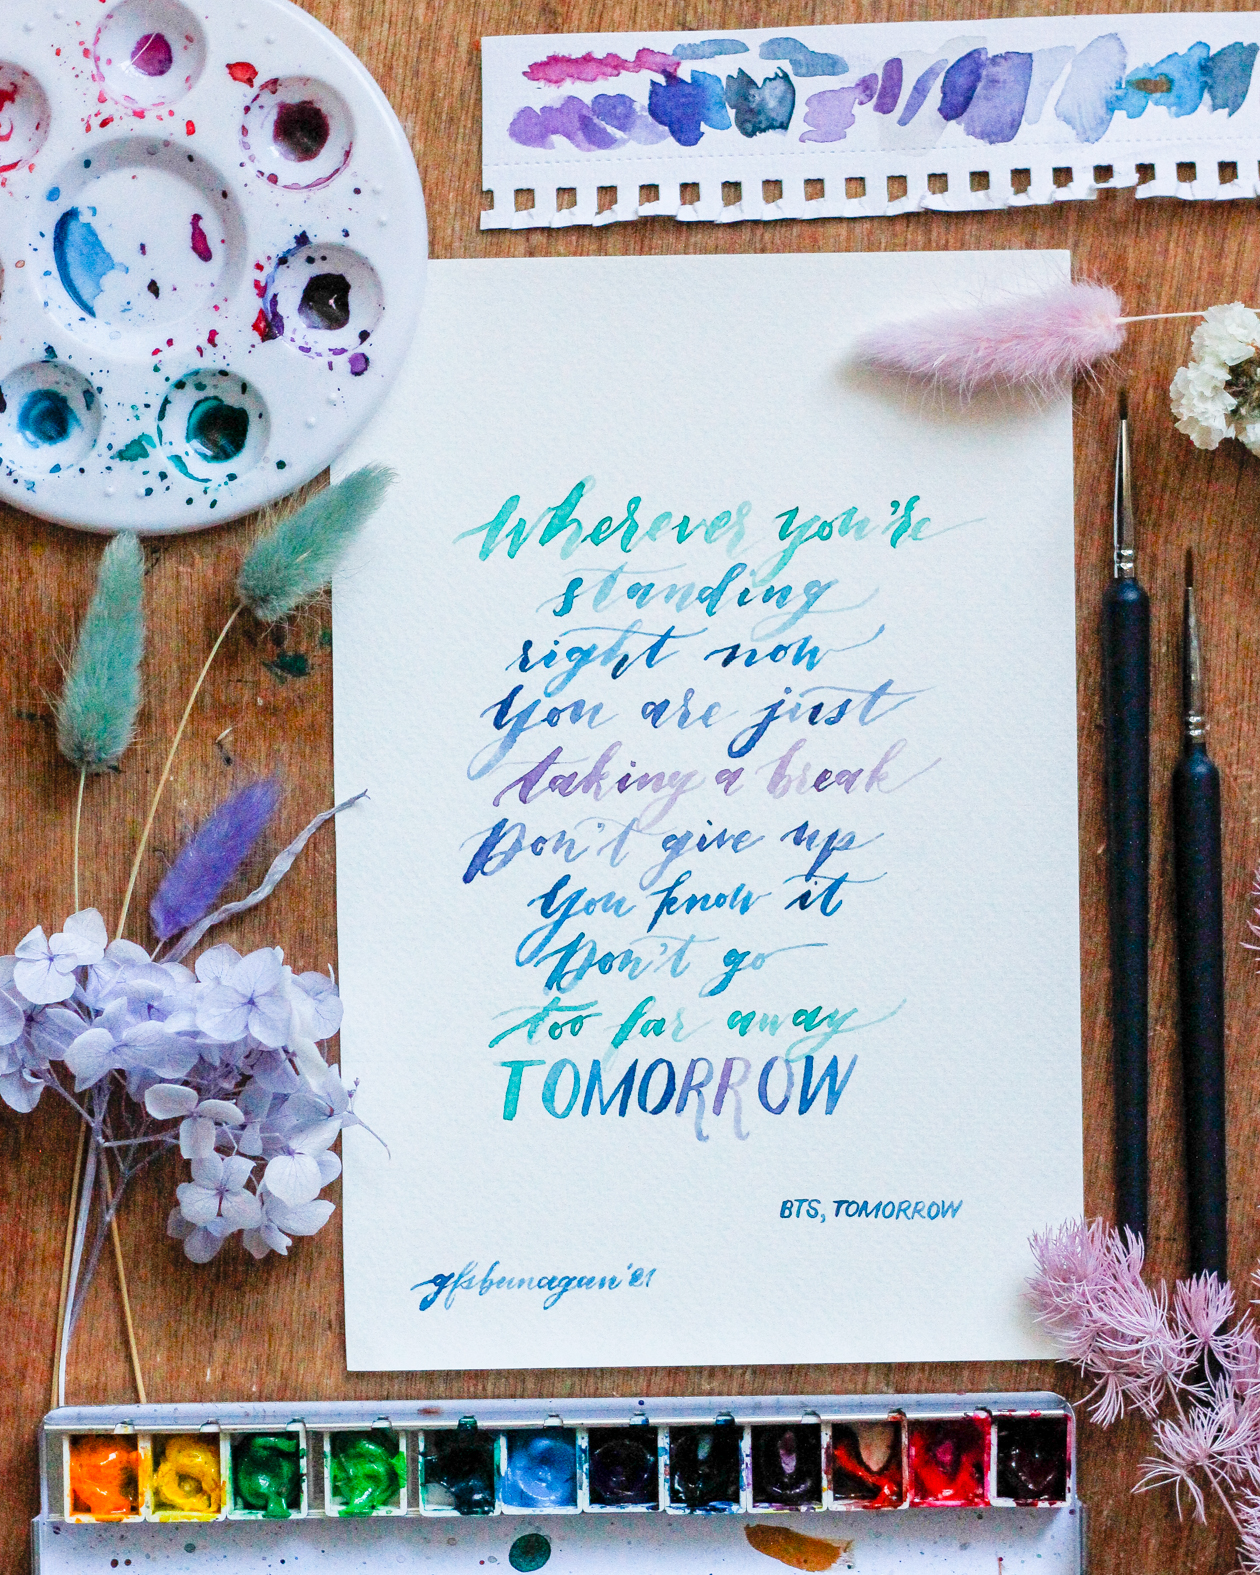 Wherever you're
standing
right now
You are just
taking a break
Don't give up
You know it
Don't go
too far away
TOMORROW
BTS, TOMORROW
gfsbunagan '21